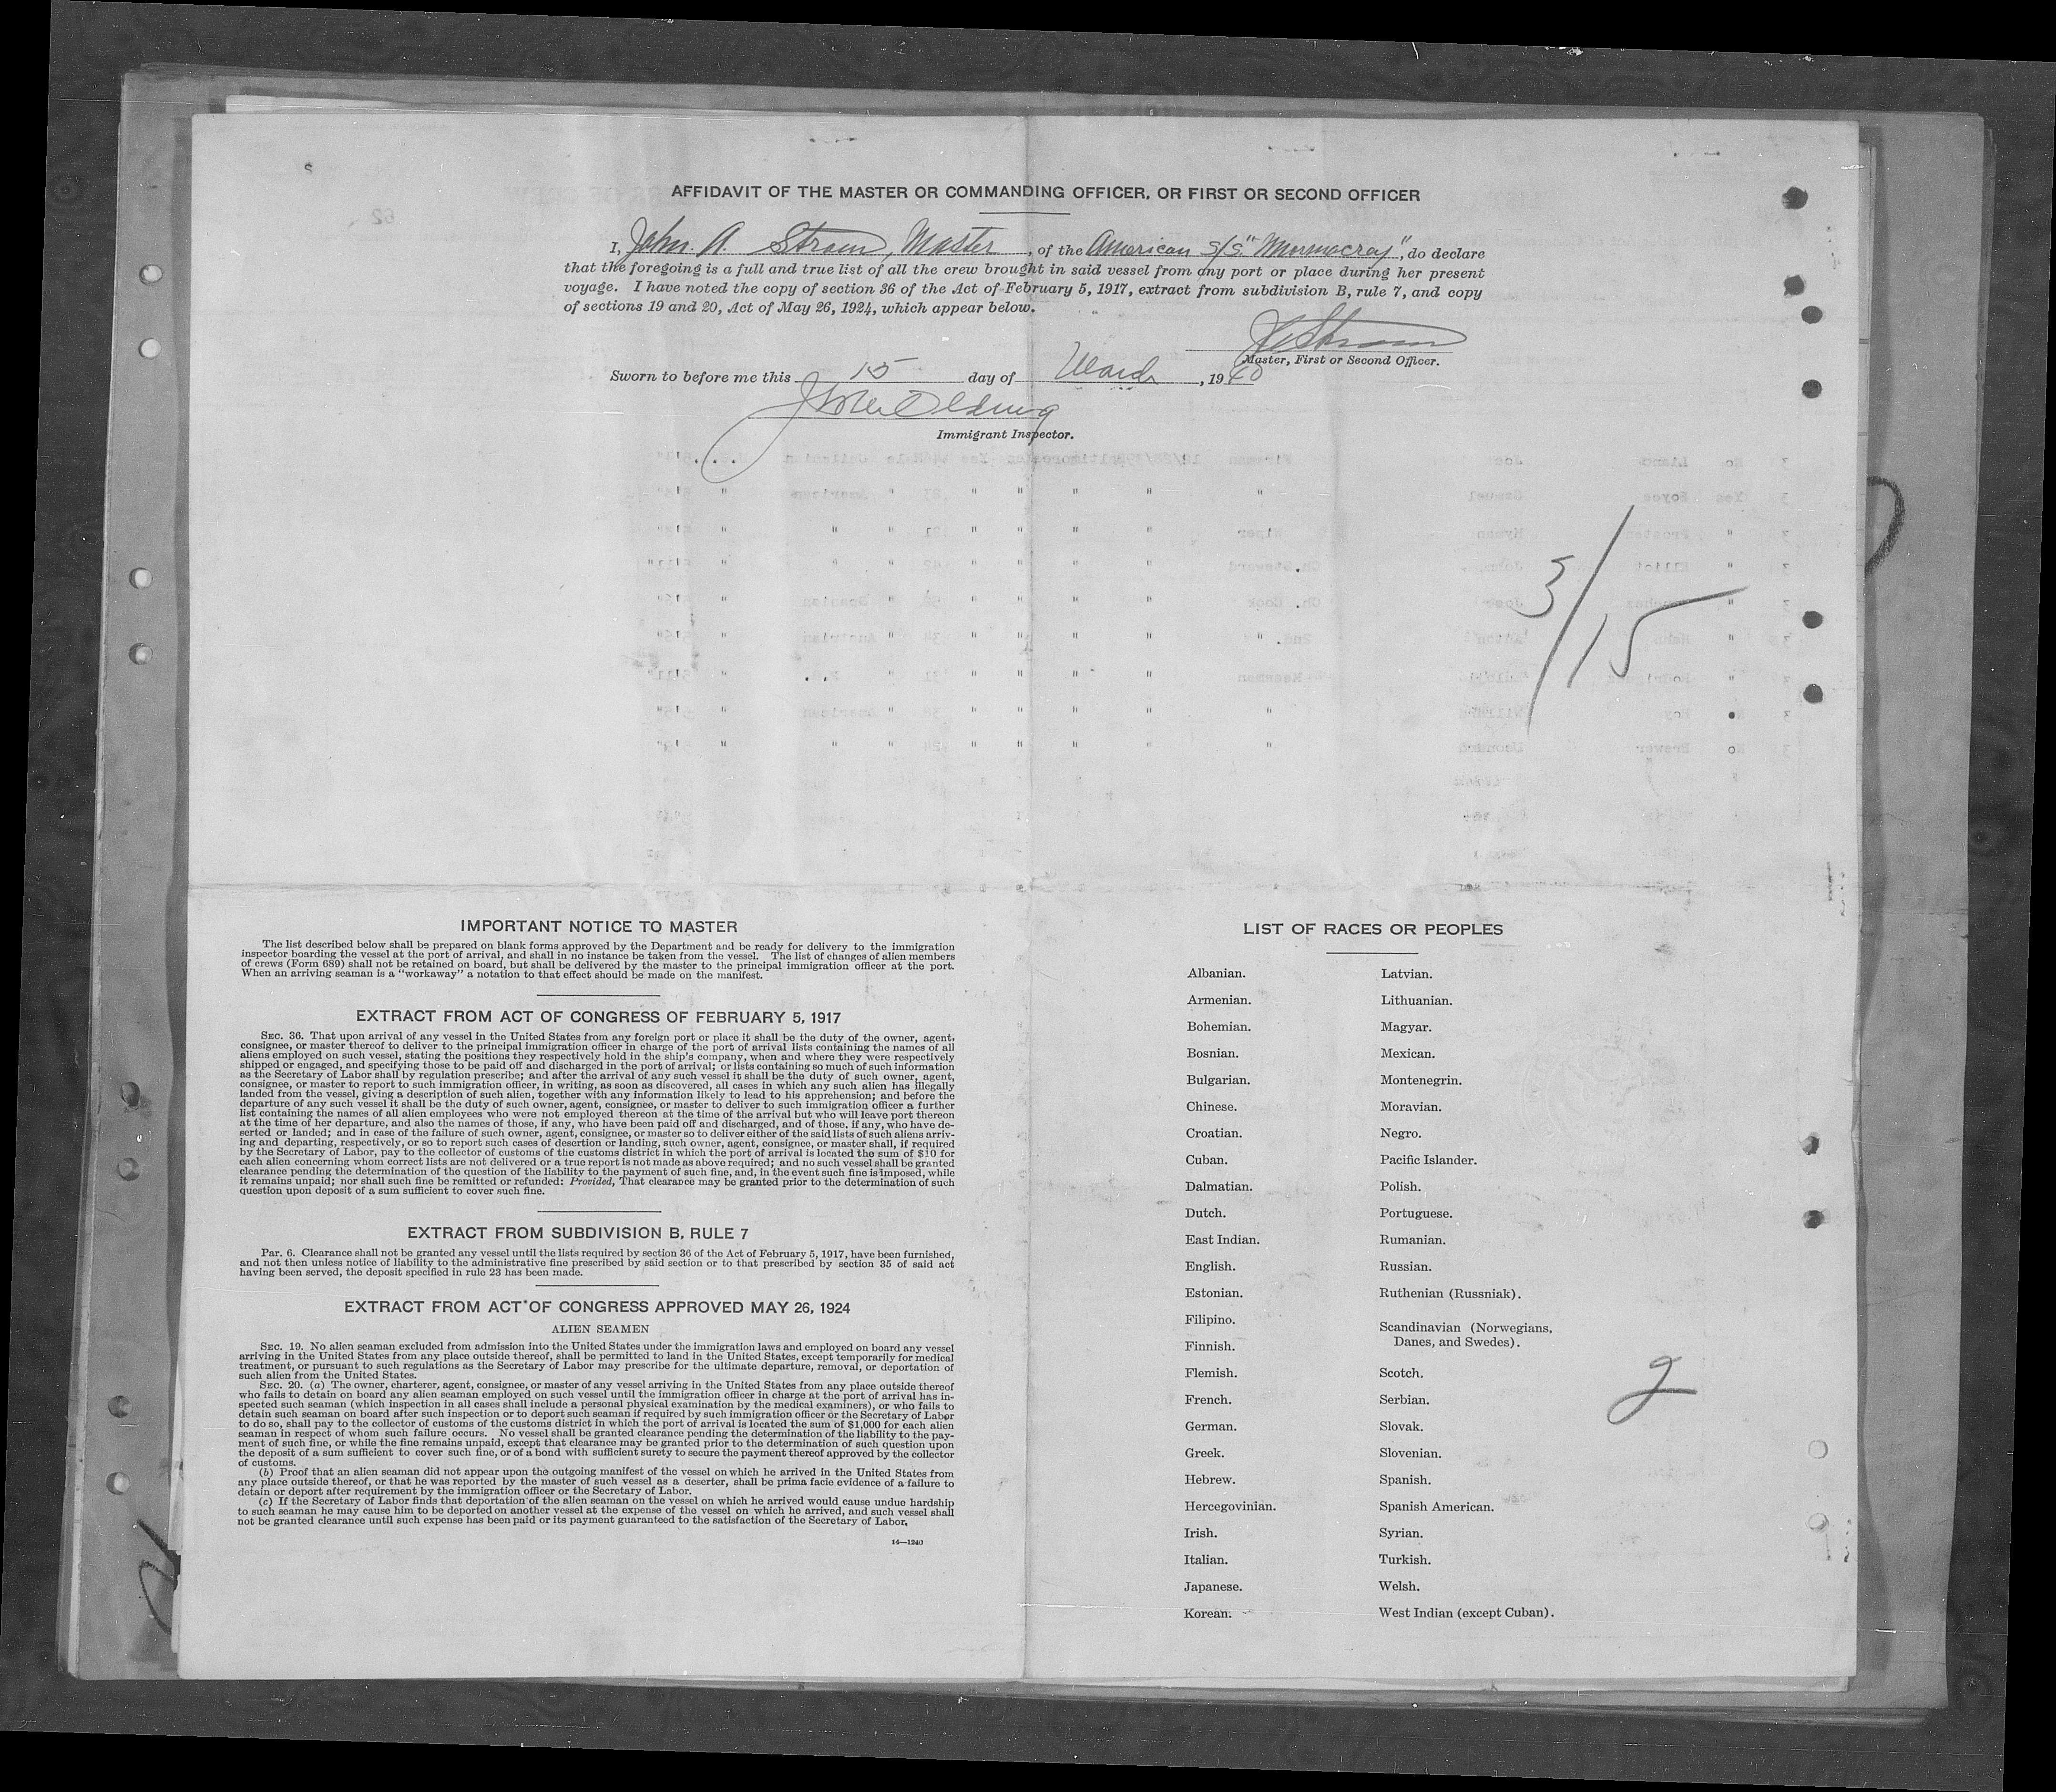 AFFIDAVIT OF THE MASTER OR COMMANDING OFFICER, OR FIRST OR SECOND OFFICER
I, John A. Strom, Master, of the American S/S "Mormacray", do declare
that the foregoing is a full and true list of all the crew brought in said vessel from any port or place during her present
voyage. I have noted the copy of section 36 of the Act of February 5, 1917, extract from subdivision B, rule 7, and copy
of sections 19 and 20, Act of May 26, 1924, which appear below.
Master, First or Second Officer.
Sworn to before me this 15 day of March, 1940
Immigrant Inspector.
3/15
IMPORTANT NOTICE TO MASTER
The list described below shall be prepared on blank forms approved by the Department and be ready for delivery to the immigration
inspector boarding the vessel at the port of arrival, and shall in no instance be taken from the vessel. The list of changes of alien members
of crews (Form 689) shall not be retained on board, but shall be delivered by the master to the principal immigration officer at the port.
When an arriving seaman is a "workaway" a notation to that effect should be made on the manifest.
EXTRACT FROM ACT OF CONGRESS OF FEBRUARY 5, 1917
SEC. 36. That upon arrival of any vessel in the United States from any foreign port or place it shall be the duty of the owner, agent,
consignee, or master thereof to deliver to the principal immigration officer in charge of the port of arrival lists containing the names of all
aliens employed on such vessel, stating the positions they respectively hold in the ship's company, when and where they were respectively
shipped or engaged, and specifying those to be paid off and discharged in the port of arrival; or lists containing so much of such information
as the Secretary of Labor shall by regulation prescribe; and after the arrival of any such vessel it shall be the duty of such owner, agent,
consignee, or master to report to such immigration officer, in writing, as soon as discovered, all cases in which any such alien has illegally
landed from the vessel, giving a description of such alien, together with any information likely to lead to his apprehension; and before the
departure of any such vessel it shall be the duty of such owner, agent, consignee, or master to deliver to such immigration officer a further
list containing the names of all alien employees who were not employed thereon at the time of the arrival but who will leave port thereon
at the time of her departure, and also the names of those, if any, who have been paid off and discharged, and of those. if any, who have de-
serted or landed; and in case of the failure of such owner, agent, consignee, or master so to deliver either of the said lists of such aliens arriv-
ing and departing, respectively, or so to report such cases of desertion or landing, such owner, agent, consignee, or master shall, if required
by the Secretary of Labor, pay to the collector of customs of the customs district in which the port of arrival is located the sum of $10 for
each alien concerning whom correct lists are not delivered or a true report is not made as above required; and no such vessel shall be granted
clearance pending the determination of the question of the liability to the payment of such fine, and, in the event such fine is imposed, while
it remains unpaid; nor shall such fine be remitted or refunded: Provided, That clearance may be granted prior to the determination of such
question upon deposit of a sum sufficient to cover such fine.
EXTRACT FROM SUBDIVISION B, RULE 7
Par. 6. Clearance shall not be granted any vessel until the lists required by section 36 of the Act of February 5, 1917, have been furnished,
and not then unless notice of liability to the administrative fine prescribed by said section or to that prescribed by section 35 of said act
having been served, the deposit specified in rule 23 has been made.
EXTRACT FROM ACT OF CONGRESS APPROVED MAY 26, 1924
ALIEN SEAMEN
SEC. 19. No alien seaman excluded from admission into the United States under the immigration laws and employed on board any vessel
arriving in the United States from any place outside thereof, shall be permitted to land in the United States, except temporarily for medical
treatment, or pursuant to such regulations as the Secretary of Labor may prescribe for the ultimate departure, removal, or deportation of
such alien from the United States.
SEC. 20. (a) The owner, charterer, agent, consignee, or master of any vessel arriving in the United States from any place outside thereof
who fails to detain on board any alien seaman employed on such vessel until the immigration officer in charge at the port of arrival has in-
spected such seaman (which inspection in all cases shall include a personal physical examination by the medical examiners), or who fails to
detain such seaman on board after such inspection or to deport such seaman if required by such immigration officer or the Secretary of Labor
to do so, shall pay to the collector of customs of the customs district in which the port of arrival is located the sum of $1,000 for each alien
seaman in respect of whom such failure occurs. No vessel shall be granted clearance pending the determination of the liability to the pay-
ment of such fine, or while the fine remains unpaid, except that clearance may be granted prior to the determination of such question upon
the deposit of a sum sufficient to cover such fine, or of a bond with sufficient surety to secure the payment thereof approved by the collector
of customs.
(b) Proof that an alien seaman did not appear upon the outgoing manifest of the vessel on which he arrived in the United States from
any place outside thereof, or that he was reported by the master of such vessel as a deserter, shall be prima facie evidence of a failure to
detain or deport after requirement by the immigration officer or the Secretary of Labor.
(c) If the Secretary of Labor finds that deportation of the alien seaman on the vessel on which he arrived would cause undue hardship
to such seaman he may cause him to be deported on another vessel at the expense of the vessel on which he arrived, and such vessel shall
not be granted clearance until such expense has been paid or its payment guaranteed to the satisfaction of the Secretary of Labor.
14—1240
LIST OF RACES OR PEOPLES
Albanian.
Armenian.
Bohemian.
Bosnian.
Bulgarian.
Chinese.
Croatian.
Cuban.
Dalmatian.
Dutch.
East Indian.
English.
Estonian.
Filipino.
Finnish.
Flemish.
French.
German.
Greek.
Hebrew.
Hercegovinian.
Irish.
Italian.
Japanese.
Korean.
Latvian.
Lithuanian.
Magyar.
Mexican.
Montenegrin.
Moravian.
Negro.
Pacific Islander.
Polish.
Portuguese.
Rumanian.
Russian.
Ruthenian (Russniak).
Scandinavian (Norwegians,
Danes, and Swedes).
Scotch.
Serbian.
Slovak.
Slovenian.
Spanish.
Spanish American.
Syrian.
Turkish.
Welsh.
West Indian (except Cuban).
2